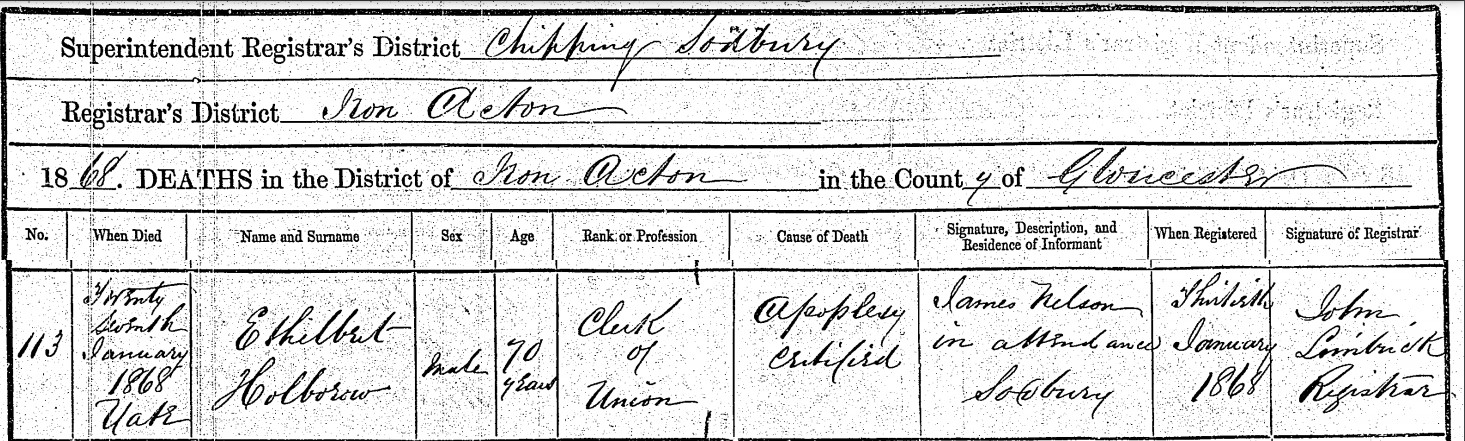 Superintendent Registrar's District Chipping Sodbury
Registrar's District Iron Acton
1868. DEATHS in the District of Iron Acton in the County of Gloucester
No. When Died Name and Surname Sex Age Rank or Profession Cause of Death Signature, Description, and Residence of Informant When Registered Signature of Registrar
113
Twenty
Seventh
January
1868
Yate
Ethilbert
Holborow
Male
70
years
Clerk
of
Union
Apoplexy
Certified
James Nelson
in attendance
Sodbury
Thirtieth
January
1868
John
Limbrick
Registrar